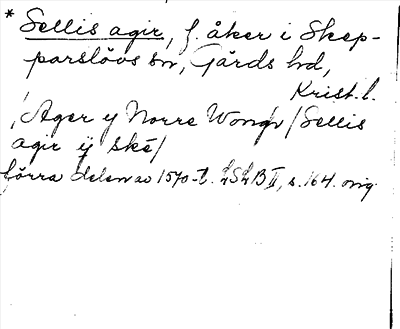 * Sellis agir, f. åker i Skep-
parslövs sn, Gärds hd,
Krist. l.
/, Ager y Norre Wong /Sellis
agir ij ske/
förra delen av 1570-t. LSLB II, s. 164. orig.